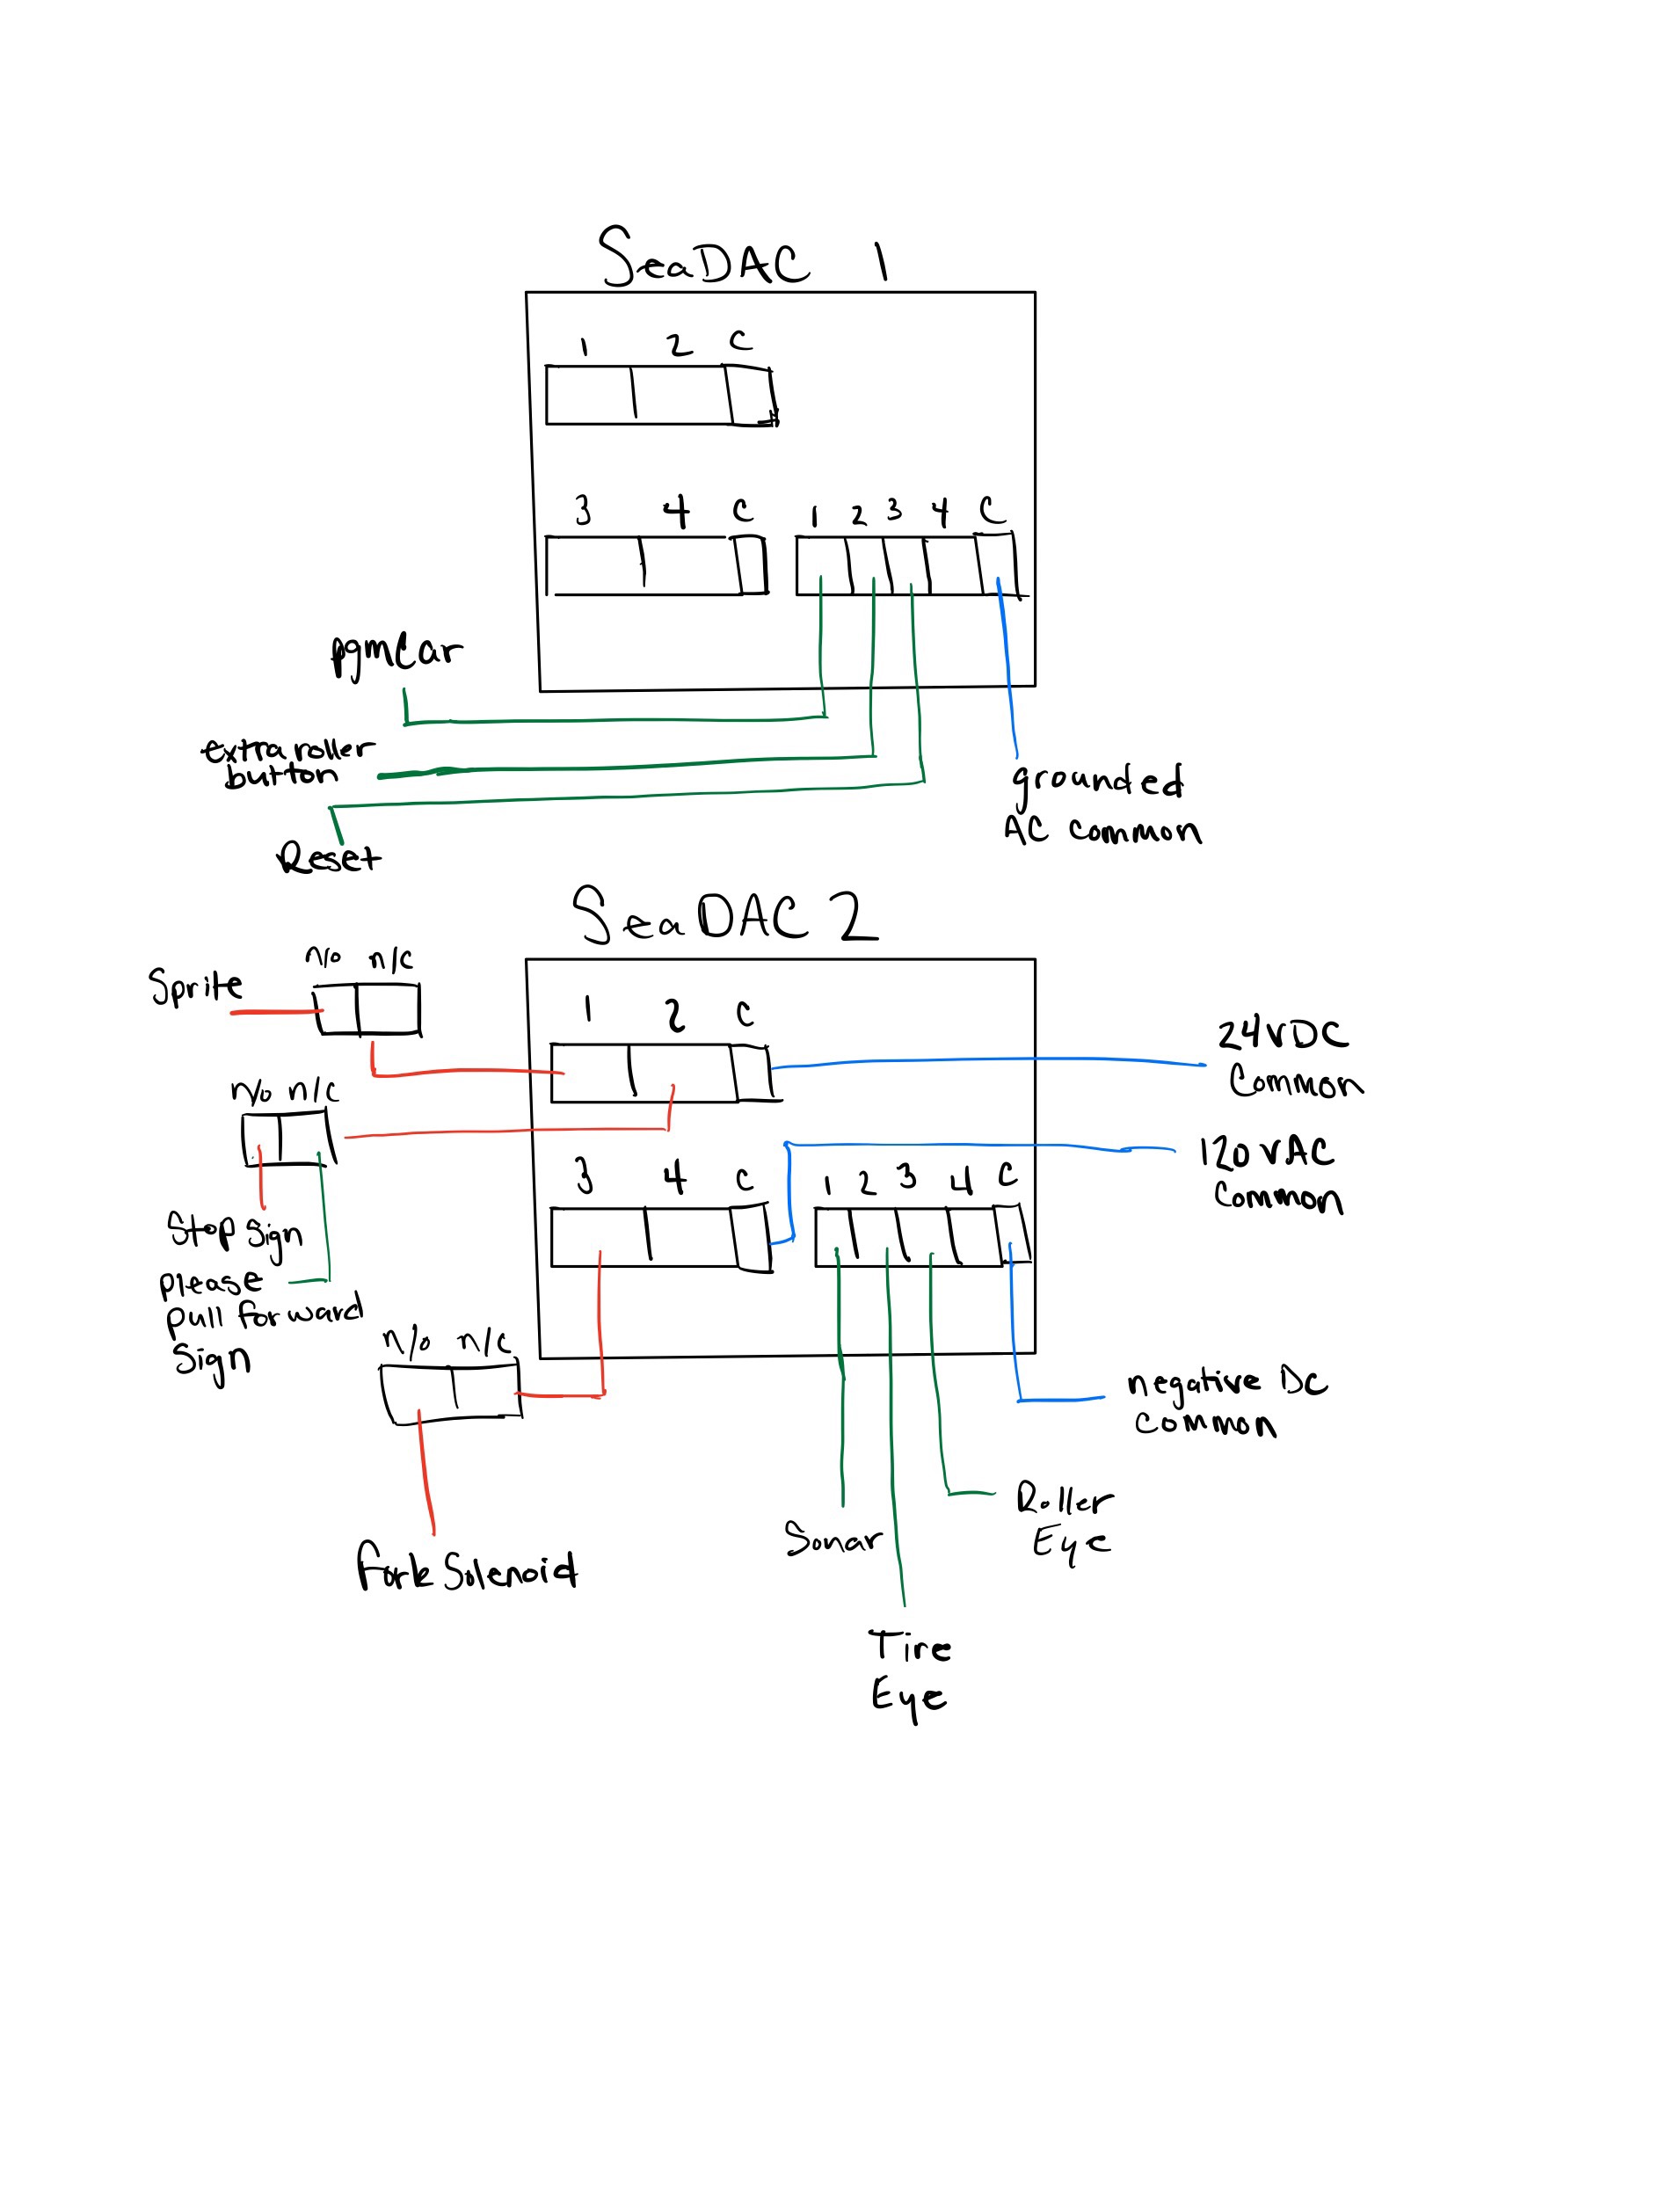 SeaDAC 1
1 2 C
3 4 C 1 2 3 4 C
pgmCar
extra roller
button
Reset
grounded
AC common
SeaDAC 2
n/o n/c
Sprite
1 2 C
24VDC
Common
n/o n/c
120VAC
Common
3 4 C 1 2 3 4 C
Stop Sign
please
pull forward
Sign
n/o n/c
negative DC
Common
Roller
Eye
Sonar
Fork Solenoid
Tire
Eye